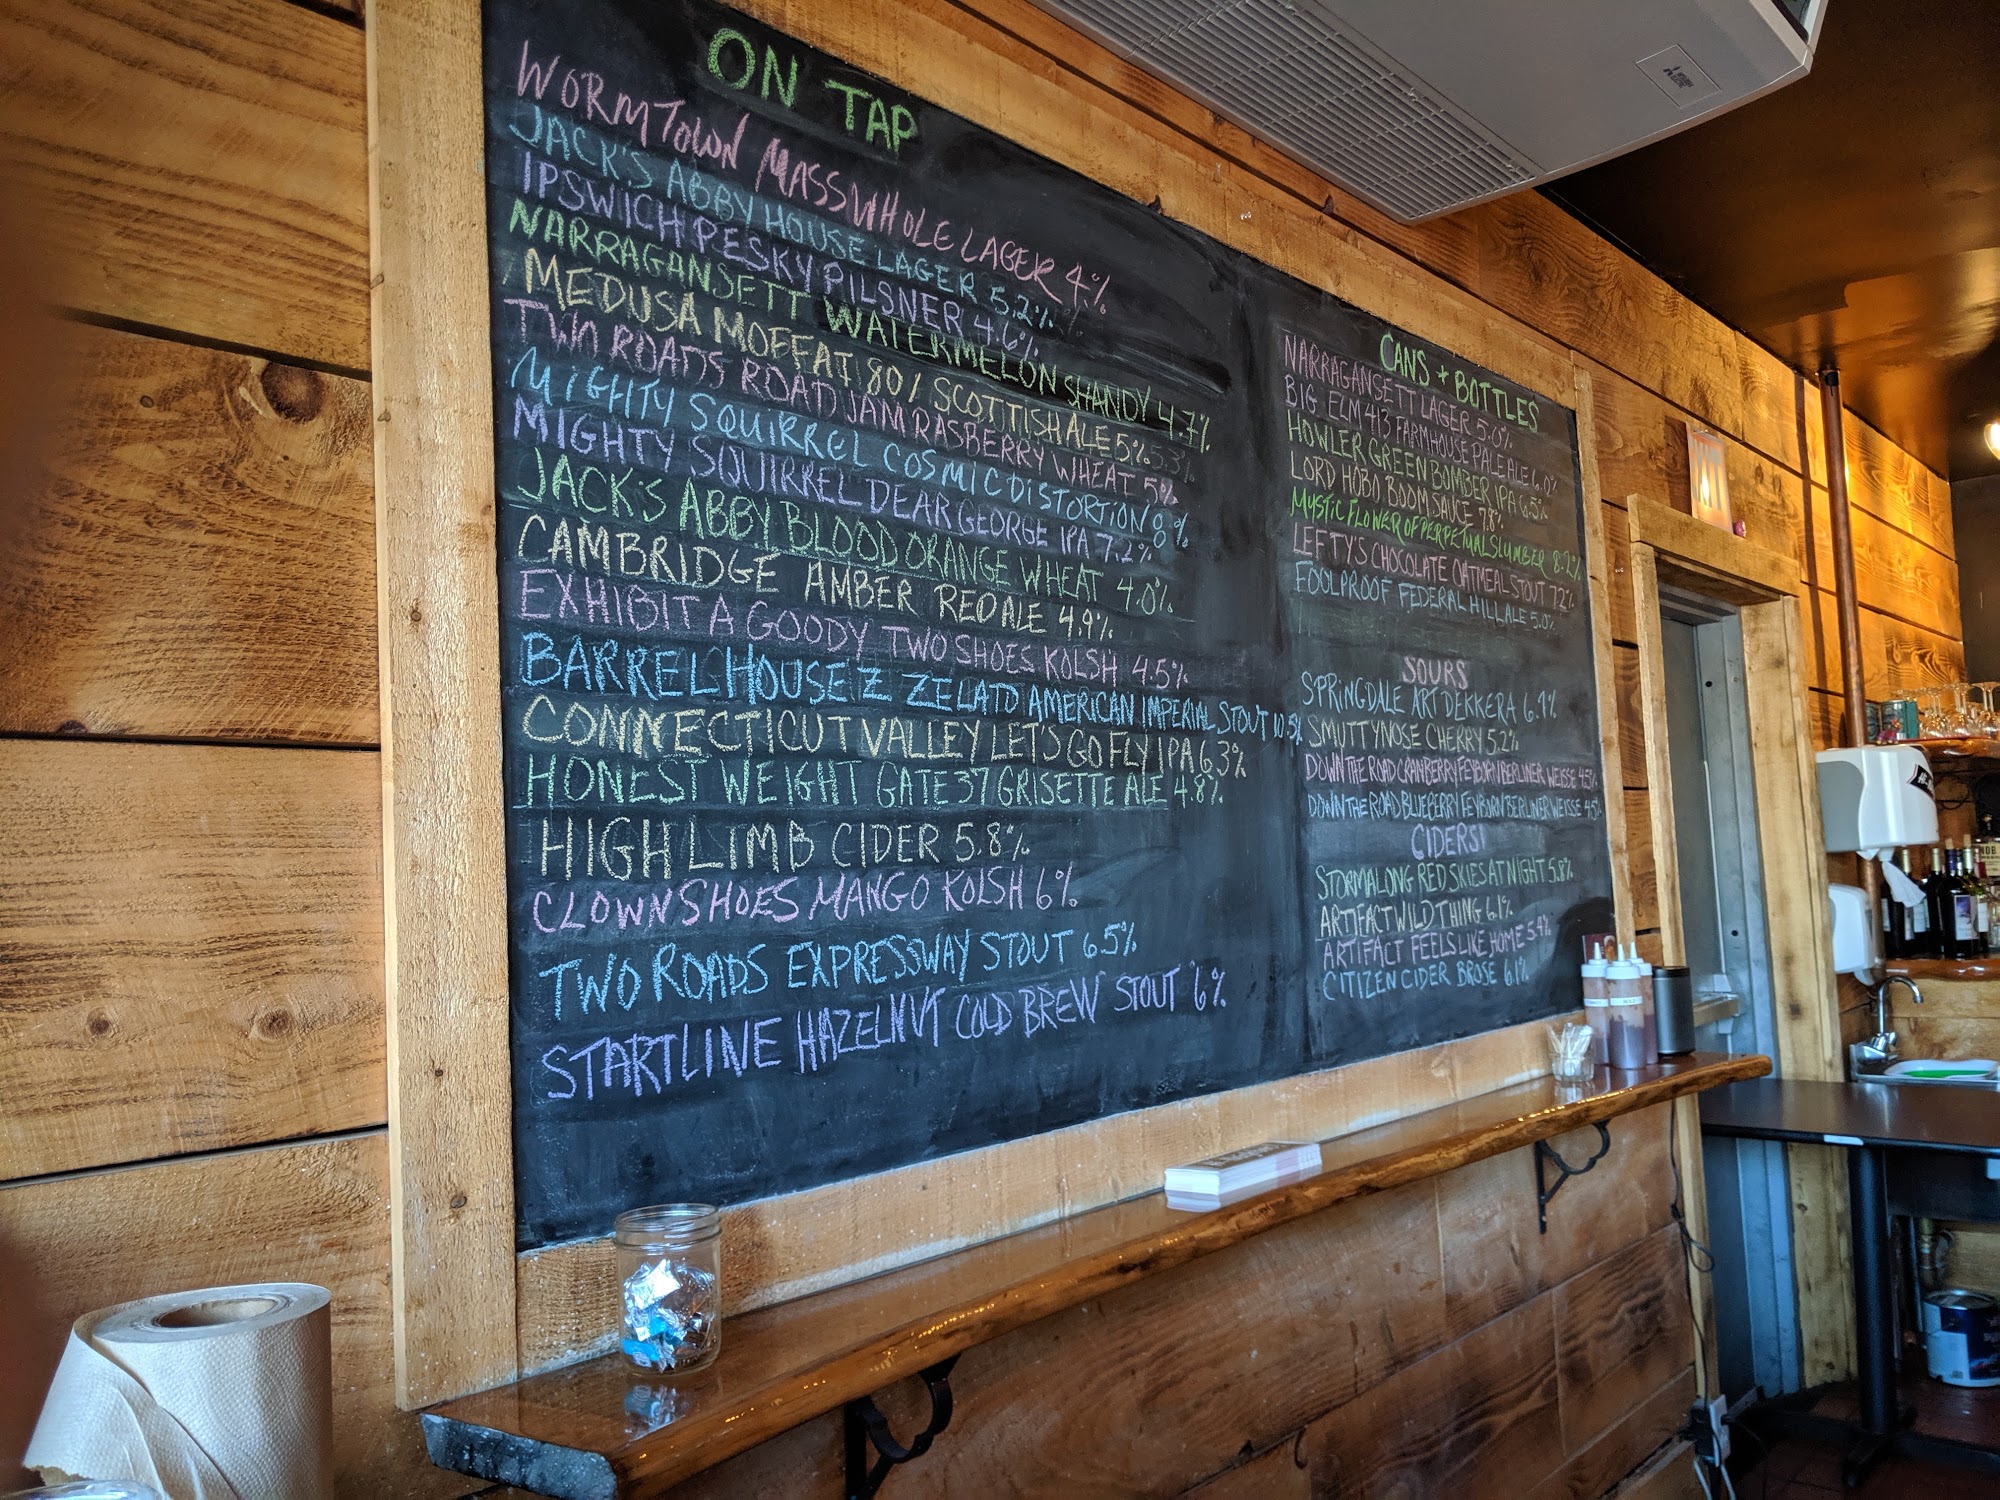 ON TAP
WORMTOWN MASSWHOLE LAGER 4%
JACK'S ABBY HOUSE LAGER 5.2%
IPSWICH PESKY PILSNER 4.6%
NARRAGANSETT WATERMELON SHANDY 4.7%
MEDUSA MOFFAT 80/ SCOTTISH ALE 5%
TWO ROADS ROAD JAM RASBERRY WHEAT 5%
MIGHTY SQUIRREL COSMIC DISTORTION 8%
MIGHTY SQUIRREL DEAR GEORGE IPA 7.2%
JACK'S ABBY BLOOD ORANGE WHEAT 4.0%
CAMBRIDGE AMBER RED ALE 4.9%
EXHIBIT A GOODY TWO SHOES KOLSH 4.5%
BARREL HOUSE Z ZELATO AMERICAN IMPERIAL STOUT 10.5%
CONNECTICUT VALLEY LET'S GO FLY IPA 6.3%
HONEST WEIGHT GATE 37 GRISETTE ALE 4.8%
HIGH LIMB CIDER 5.8%
CLOWN SHOES MANGO KOLSH 6%
TWO ROADS EXPRESSWAY STOUT 6.5%
STARTLINE HAZELNUT COLD BREW STOUT 6%
CANS + BOTTLES
NARRAGANSETT LAGER 5.0%
BIG ELM 413 FARMHOUSE PALE ALE 6.0%
HOWLER GREEN BOMBER IPA 6.5%
LORD HOBO BOOM SAUCE 7.8%
MYSTIC FLOWER OF PERPETUAL SLUMBER 8.2%
LEFTY'S CHOCOLATE OATMEAL STOUT 7.2%
FOOLPROOF FEDERAL HILL ALE 5.0%
SOURS
SPRINGDALE ART DEKKERA 6.9%
SMUTTYNOSE CHERRY 5.2%
DOWN THE ROAD CRANBERRY FEYBORN BERLINER WEISSE 4.5%
DOWN THE ROAD BLUEBERRY FEYBORN BERLINER WEISSE 4.5%
CIDERS!
STORMALONG RED SKIES AT NIGHT 5.8%
ARTIFACT WILD THING 6.1%
ARTIFACT FEELS LIKE HOME 5.4%
CITIZEN CIDER BROSE 6.1%